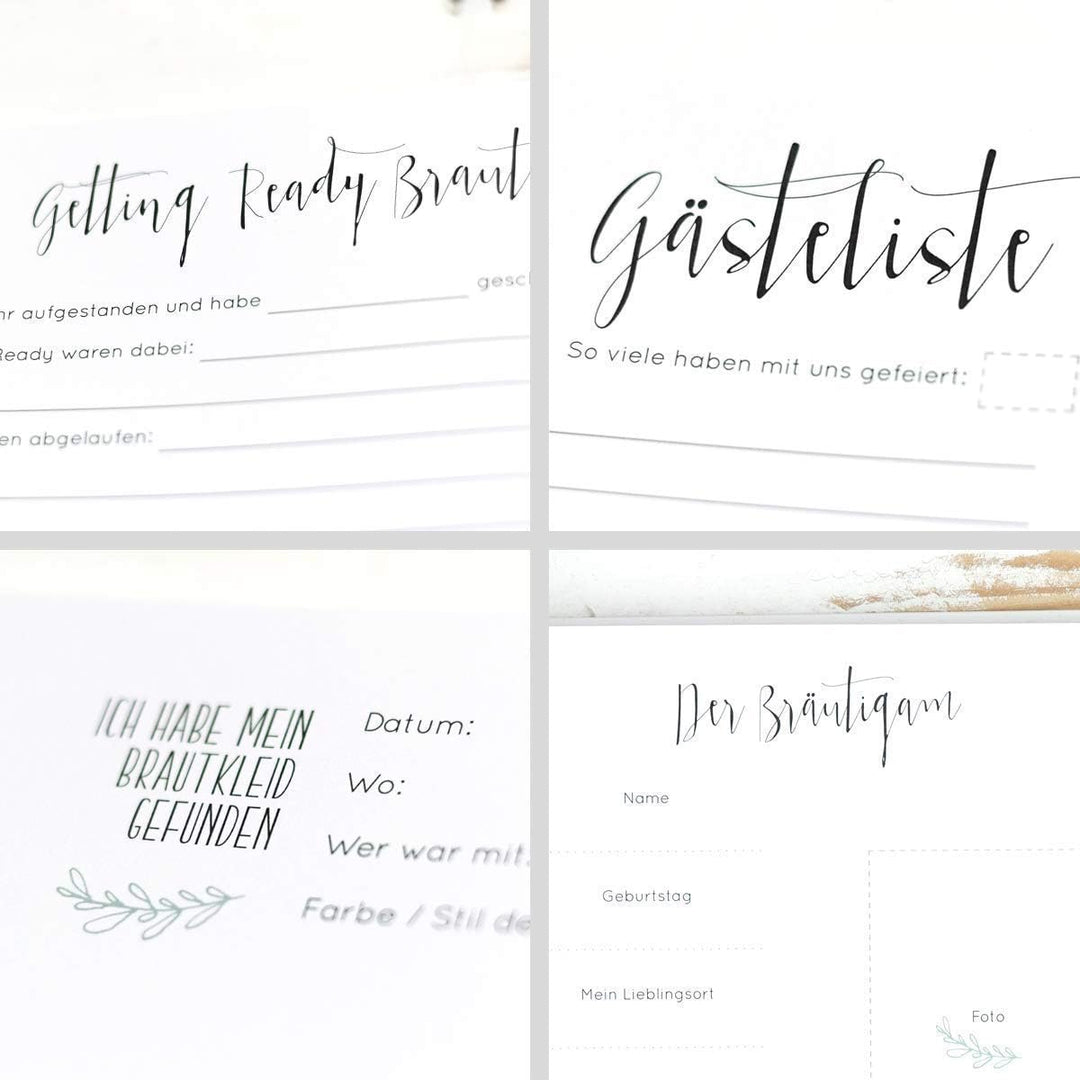 Getting Ready Braut
aufgestanden und habe
Ready waren dabei:
abgelaufen:
Gästeliste
So viele haben mit uns gefeiert:
ICH HABE MEIN
BRAUTKLEID
GEFUNDEN
Datum:
Wo:
Wer war mit
Farbe / Stil
Der Bräutigam
Name
Geburtstag
Mein Lieblingsort
Foto